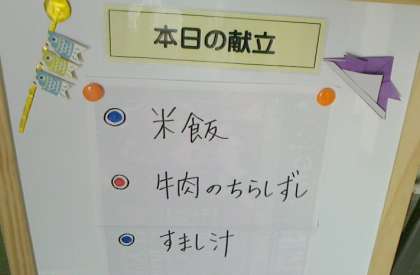 本日の献立
米飯
牛肉のちらしずし
すまし汁